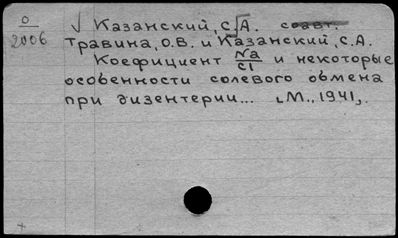 О
2006
√ Казанский, С.А. соавт.
Травина, О.В. и Казанский, С.А.
Коефициент Na/Cl и некоторые
особенности солевого обмена
при дизентерии... [М., 1941].